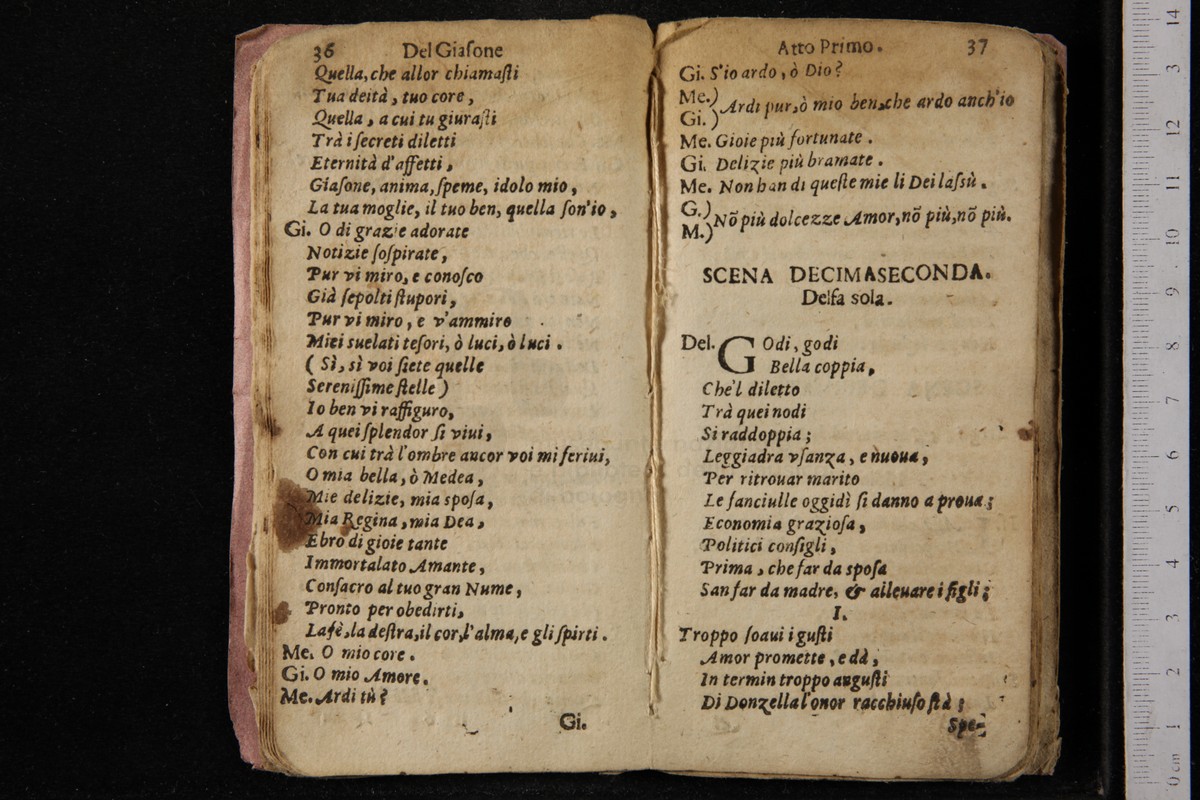 36 Del Giaſone
Quella, che allor chiamaſti
Tua deità, tuo core,
Quella, a cui tu giuraſti
Trà i ſecreti diletti
Eternità d'affetti,
Giaſone, anima, ſpeme, idolo mio,
La tua moglie, il tuo ben, quella ſon'io,
Gi. O di grazie adorate
Notizie ſoſpirate,
Pur vi miro, e conoſco
Già ſepolti ſtupori,
Pur vi miro, e v'ammiro
Miei suelati teſori, ò luci, ò luci.
( Sì, sì voi ſiete quelle
Sereniſſime ſtelle )
Io ben vi raffiguro,
A quei ſplendor ſi viui,
Con cui trà l'ombre ancor voi mi feriui,
O mia bella, ò Medea,
Mie delizie, mia spoſa,
Mia Regina, mia Dea,
Ebro di gioie tante
Immortalato Amante,
Conſacro al tuo gran Nume,
Pronto per obedirti,
La fè, la deſtra, il cor, l'alma, e gli ſpirti.
Me. O mio core.
Gi. O mio Amore.
Me. Ardi tù?
Gi.
Atto Primo. 37
Gi. S'io ardo, ò Dio?
Me.)
Gi. ) Ardi pur, ò mio ben, che ardo anch'io
Me. Gioie più fortunate.
Gi. Delizie più bramate.
Me. Non han di queſte mie li Dei laſsù.
G.)
M.) Nõ più dolcezze Amor, nõ più, nõ più.
SCENA DECIMASECONDA.
Delfa sola.
Del. Godi, godi
Bella coppia,
Che'l diletto
Trà quei nodi
Si raddoppia;
Leggiadra vſanza, e nuoua,
Per ritrouar marito
Le fanciulle oggidì ſi danno a proua;
Economia grazioſa,
Politici conſigli,
Prima, che far da spoſa
San far da madre, & alleuare i figli;
I.
Troppo ſoaui i guſti
Amor promette, e dà,
In termin troppo anguſti
Di Donzella l'onor racchiuſo ſtà;
Spe-